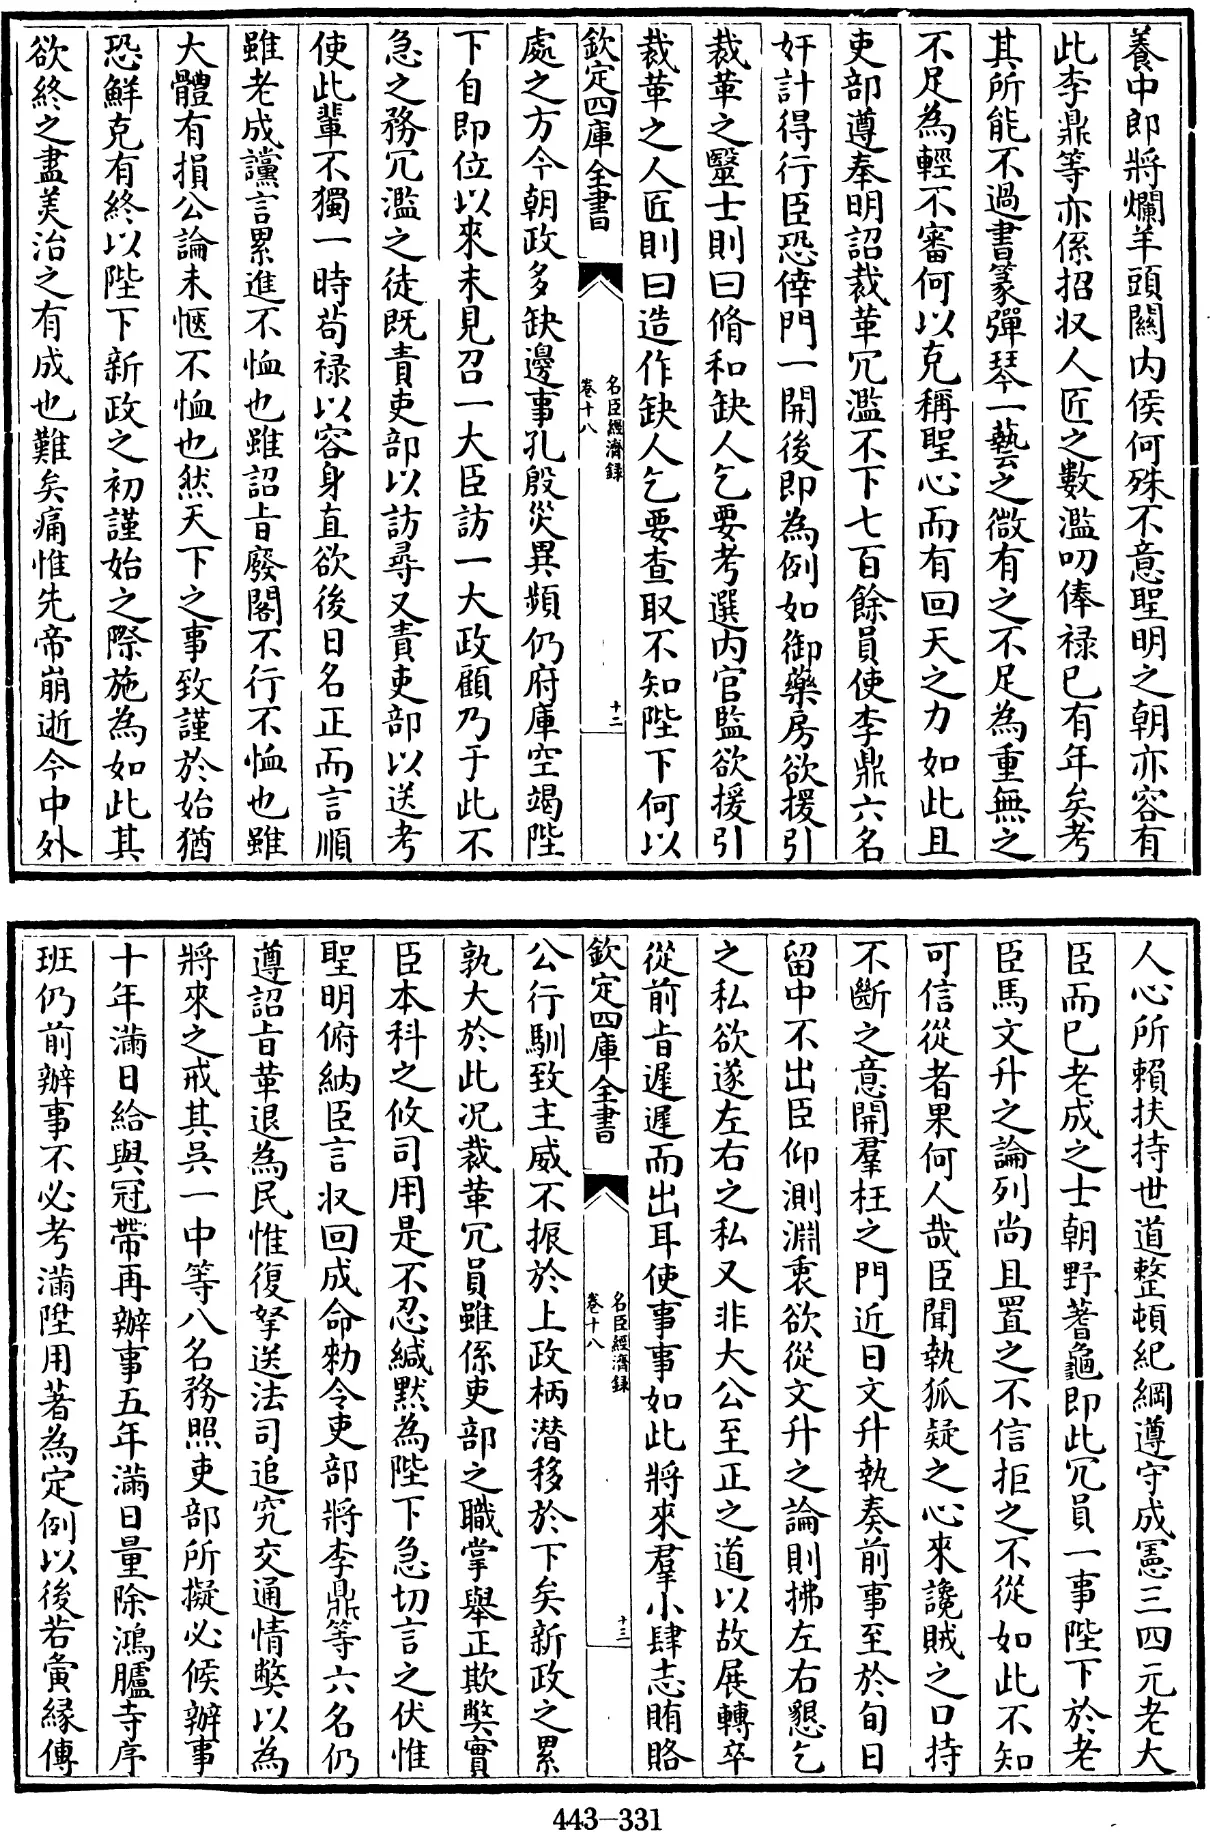 養中郎將爛羊頭關内侯何殊不意聖明之朝亦容有
此李鼎等亦係招收人匠之數濫叨俸祿已有年矣考
其所能不過書篆彈琴一藝之微有之不足為重無之
不足為輕不審何以克稱聖心而有回天之力如此且
吏部遵奉明詔裁革冗濫不下七百餘員使李鼎六名
奸計得行臣恐倖門一開後即為例如御藥房欲援引
裁革之醫士則曰脩和缺人乞要考選内官監欲援引
裁革之人匠則曰造作缺人乞要查取不知陛下何以
欽定四庫全書
名臣經濟録
卷十八
十二
處之方今朝政多缺邊事孔殷災異頻仍府庫空竭陛
下自即位以來未見召一大臣訪一大政顧乃于此不
急之務冗濫之徒既責吏部以訪尋又責吏部以送考
使此輩不獨一時苟祿以容身直欲後日名正而言順
雖老成讜言累進不恤也雖詔旨廢閣不行不恤也雖
大體有損公論未愜不恤也然天下之事致謹於始猶
恐鮮克有終以陛下新政之初謹始之際施為如此其
欲終之盡美治之有成也難矣痛惟先帝崩逝今中外
人心所賴扶持世道整頓紀綱遵守成憲三四元老大
臣而已老成之士朝野蓍龜即此冗員一事陛下於老
臣馬文升之論列尚且置之不信拒之不從如此不知
可信從者果何人哉臣聞執狐疑之心來讒賊之口持
不斷之意開羣枉之門近日文升執奏前事至於旬日
留中不出臣仰測淵衷欲從文升之論則拂左右懇乞
之私欲遂左右之私又非大公至正之道以故展轉卒
從前旨遲遲而出耳使事事如此將來羣小肆志賄賂
欽定四庫全書
名臣經濟録
卷十八
十三
公行馴致主威不振於上政柄潜移於下矣新政之累
孰大於此况裁革冗員雖係吏部之職掌舉正欺弊實
臣本科之攸司用是不忍緘默為陛下急切言之伏惟
聖明俯納臣言收回成命勑令吏部將李鼎等六名仍
遵詔旨革退為民惟復拏送法司追究交通情弊以為
將來之戒其吳一中等八名務照吏部所擬必候辦事
十年滿日給與冠帶再辦事五年滿日量除鴻臚寺序
班仍前辦事不必考滿陞用著為定例以後若夤縁傳
443-331